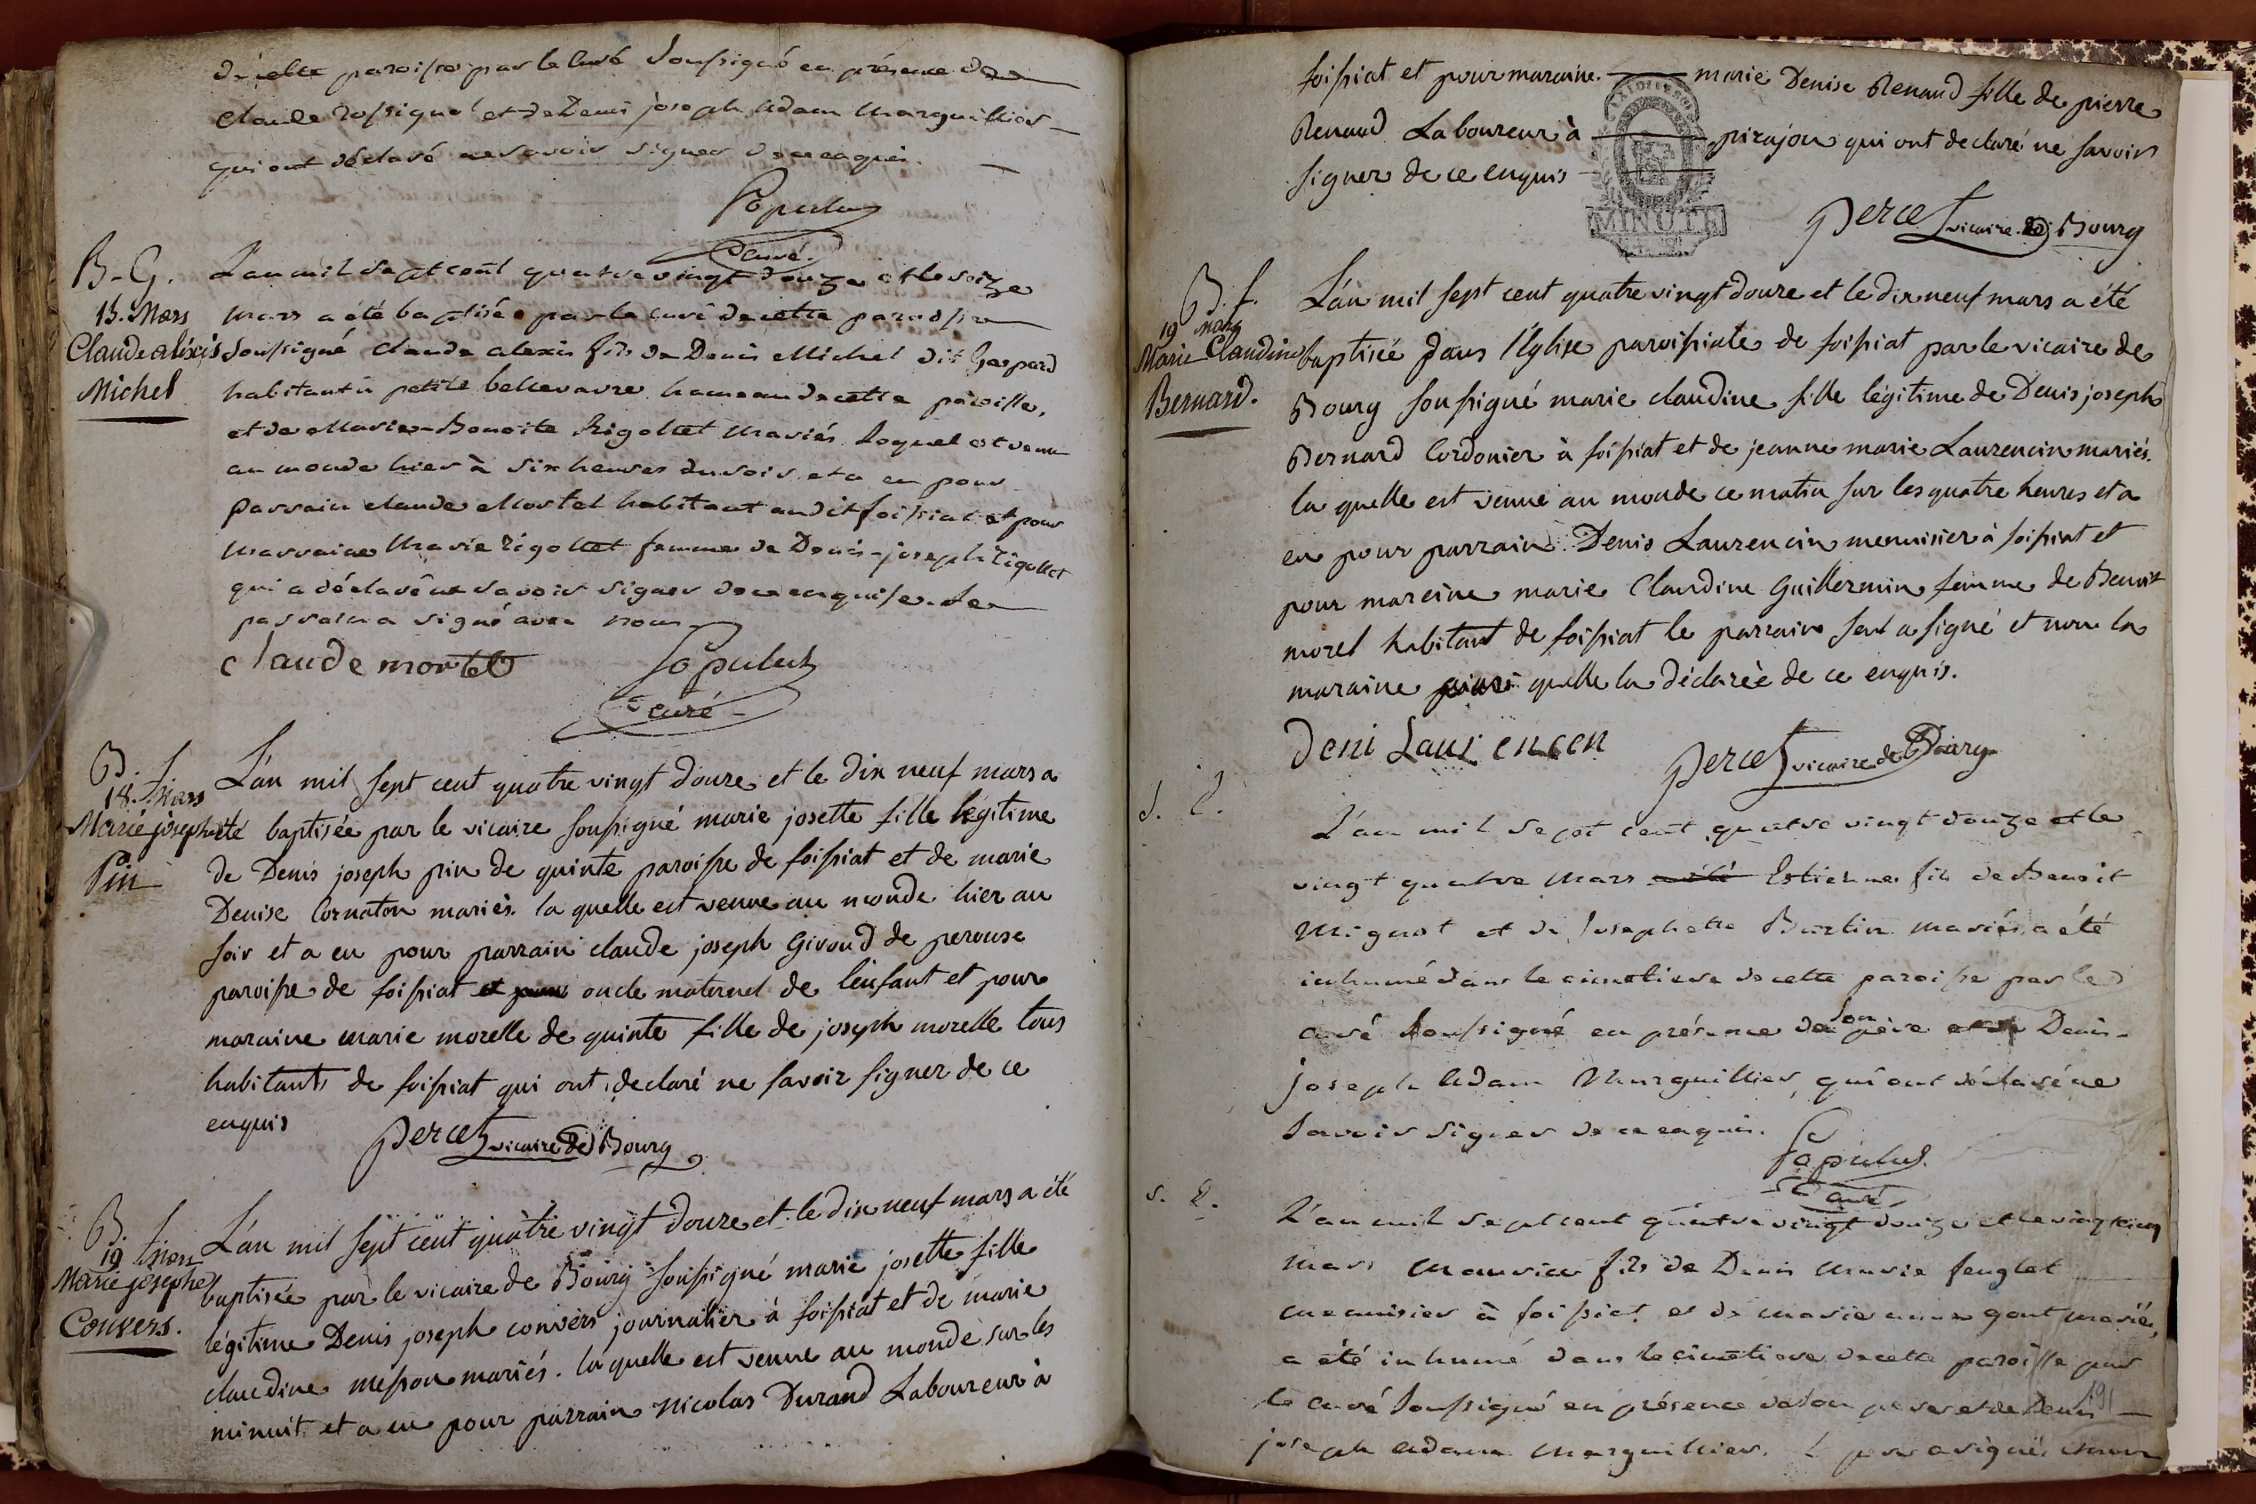 de cette paroisse par le Curé Soussigné en présence de
Claude Rossignol et de Denis joseph Adam Marguillier
qui ont déclaré ne savoir signer de ce enquis.
Populus
Curé
B. G.
15. Mars
Claude alexis
Michel
L'an mil sept cent quatre vingt douze et le seize
mars a été baptisé par le curé de cette paroisse
soussigné Claude alexis fils de Denis Michel dit Gaspard
habitant à petite bellevavre hameau de cette paroisse,
et de Marie-Benoite Rigollet mariés. Lequel est venu
au monde hier à six heures du soir et a eu pour
parrain claude Mortel habitant audit foissiat et pour
marraine Marie Rigollet femme de Denis-joseph Rigollet
qui a déclaré ne savoir signer de ce enquise. Le
parrain a signé avec nous
claude mortel Populus
Curé
B. f.
18. Mars
Marie josephte
Pin
L'an mil sept cent quatre vingt douze et le dix neuf mars a
été baptisée par le vicaire soussigné marie josette fille légitime
de Denis joseph pin de quinte paroisse de foissiat et de marie
Denise Cornaton mariés. la quelle est venue au monde hier au
soir et a eu pour parrain claude joseph Givoud de perouse
paroisse de foissiat et pour oncle maternel de l'enfant et pour
maraine marie morelle de quinte fille de joseph morelle tous
habitants de foissiat qui ont declaré ne savoir signer de ce
enquis
Percet vicaire de Bourg
B. f.
19 Mars
Marie josephe
Convers.
L'an mil sept cent quatre vingt douze et le dix neuf mars a été
baptisée par le vicaire de Bourg soussigné marie josette fille
légitime Denis joseph convers journalier à foissiat et de marie
claudine messon mariés. la quelle est venue au monde sur les
minuit et a eu pour parrain Nicolas Durand Laboureur à
foissiat et pour maraine. marie Denise Renaud fille de pierre
Renaud Laboureur à pirajou qui ont declaré ne savoir
signer de ce enquis
MINUTE
Percet vicaire de Bourg
B. f.
19 Mars
Marie Claudine
Bernard.
L'an mil sept cent quatre vingt douze et le dix neuf mars a été
baptisée dans l'Église paroissiale de foissiat par le vicaire de
Bourg soussigné marie claudine fille légitime de Denis joseph
Bernard Cordonier à foissiat et de jeanne marie Laurencin mariés.
la quelle est venue au monde ce matin sur les quatre heures et a
eu pour parrain Denis Laurencin menuisier à foissiat et
pour mareine marie Claudine Guillermin femme de Benoit
morel habitant de foissiat le parrain seul a signé et non la
maraine quelle la déclarée de ce enquis.
Deni Laurencen Percet vicaire de Bourg
L'an mil sept cent quatre vingt douze et le
vingt quatre Mars a été Estienne fils de Benoit
Mignot et de Josephette Burtin mariés a été
inhumé dans le cimetiere de cette paroisse par le
curé Soussigné en présence de son père et de Denis-
joseph Adam Marguillier, qui ont déclaré ne
savoir signer de ce enquis.
Populus
Curé
L'an mil sept cent quatre vingt douze et le vingt cinq
Mars Maurice fils de Denis Marie feuglet
menuisier à foissiat et de marie anne gout mariés,
a été inhumé dans le cimetiere de cette paroisse par
le curé soussigné en présence de son pere et de Denis
191
joseph Adam Marguillier. L pere a signé